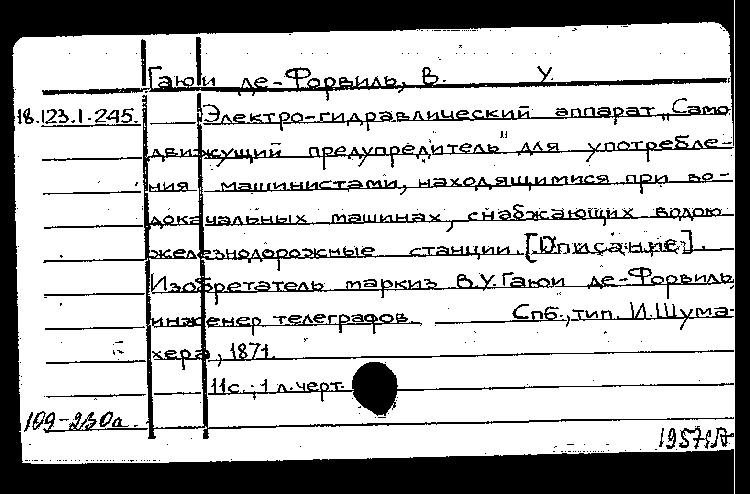 Гаюи де-Форвиль, В. У.
18.123.1.245. Электро-гидравлический аппарат „Само
движущий предупредитель" для употребле-
ния машинистами, находящимися при во-
докачальных машинах, снабжающих водою
железнодорожные станции. [Описание].
Изобретатель маркиз В.У. Гаюи де-Форвиль,
инженер телеграфов. Спб., тип. И.Шума-
хера, 1871.
11с.; 1 л.черт.
109-230а.